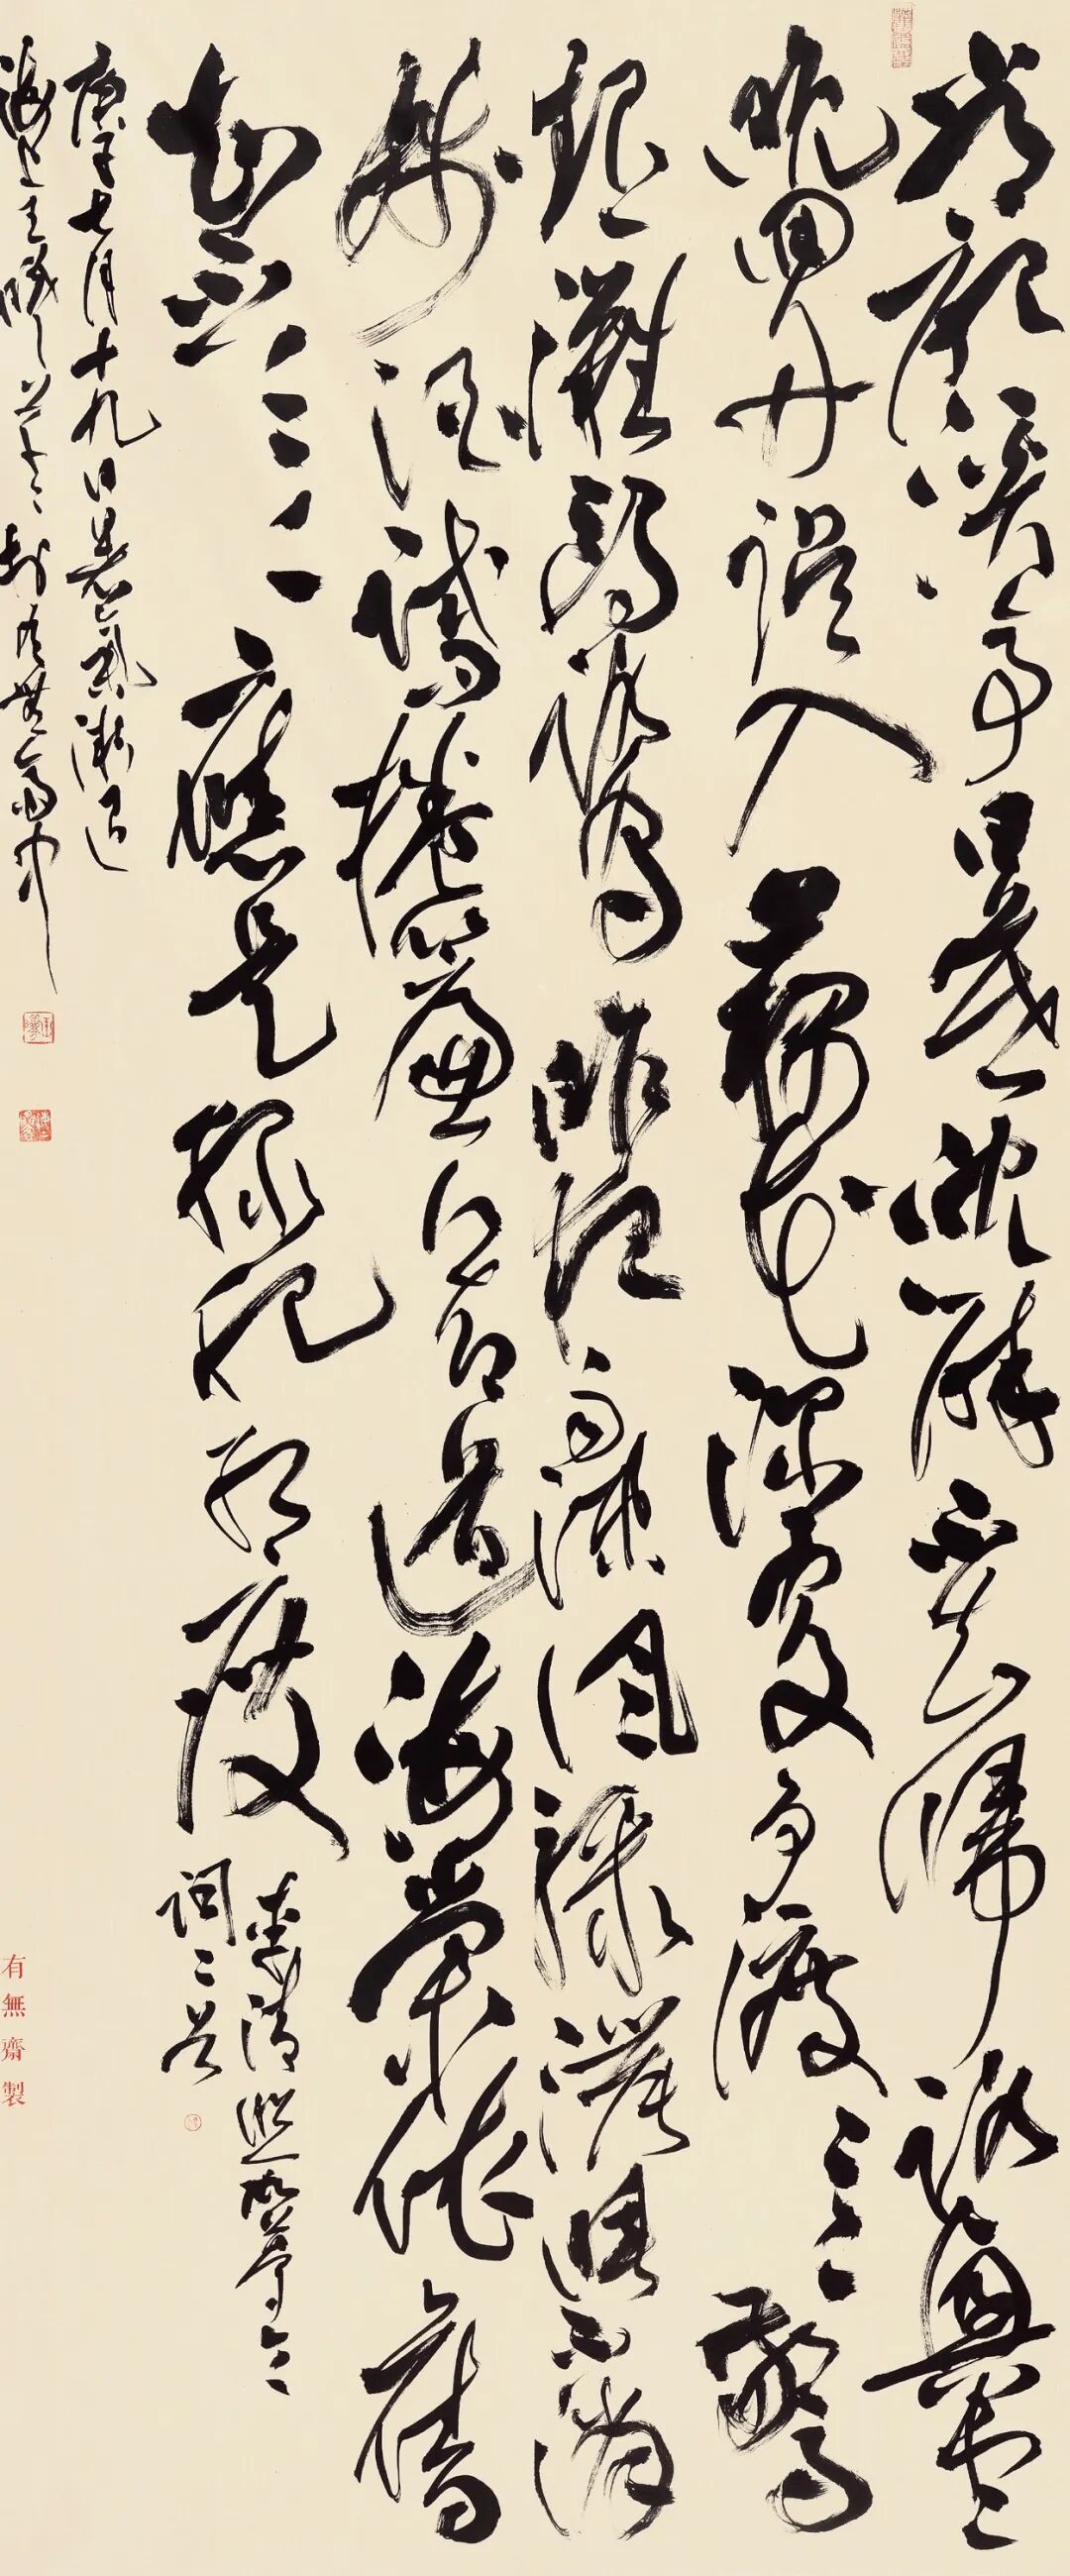 常記溪亭日暮沈醉不知歸路興盡
晚回舟誤入藕花深處爭渡〻〻驚
起灘鷗鷺昨夜雨疎風驟濃睡不消
殘酒試問捲簾人却道海棠依舊
知否〻〻應是綠肥紅瘦
李清照如夢令
詞二首
庚子七月十九日暑氣漸退
海上王曦
有無齋製